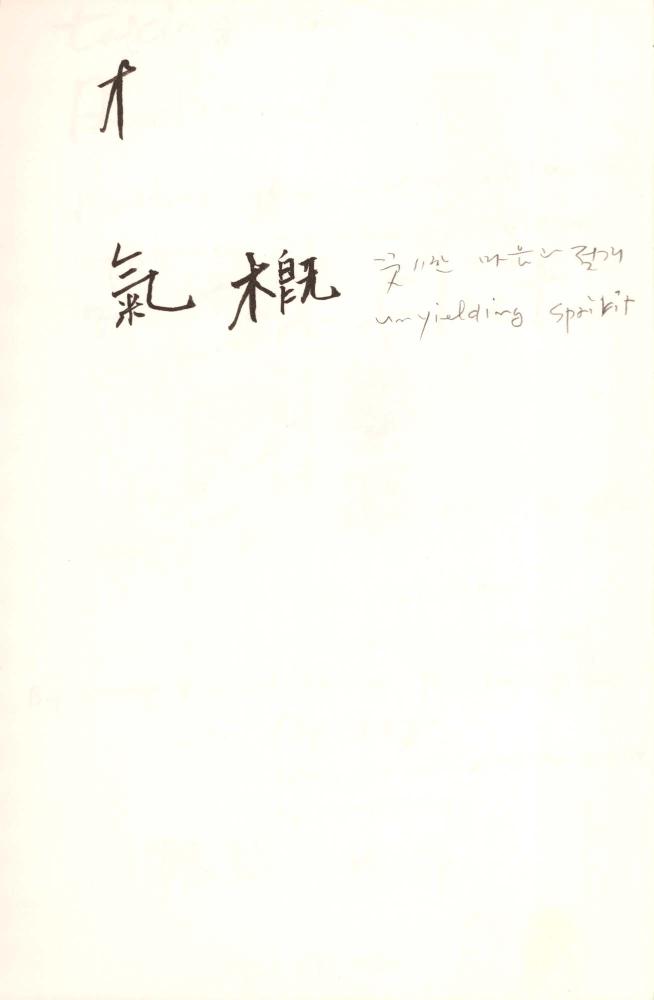 氣概 굿센 마음과 절개
unyielding spirit